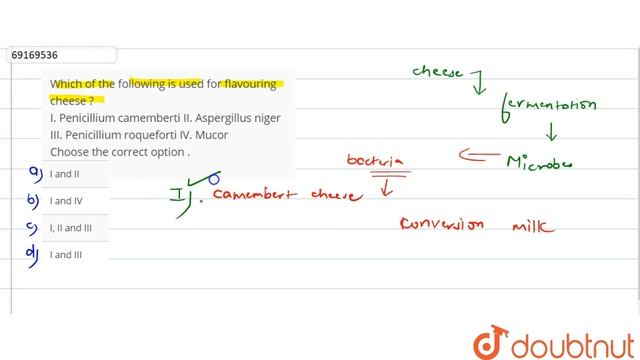 69169536
Which of the following is used for flavouring
cheese ?
I. Penicillium camemberti II. Aspergillus niger
III. Penicillium roqueforti IV. Mucor
Choose the correct option .
a) I and II
b) I and IV
c) I, II and III
d) I and III
cheese
fermentation
Microbes
bacteria
I) . Camembert cheese
Conversion milk
doubtnut